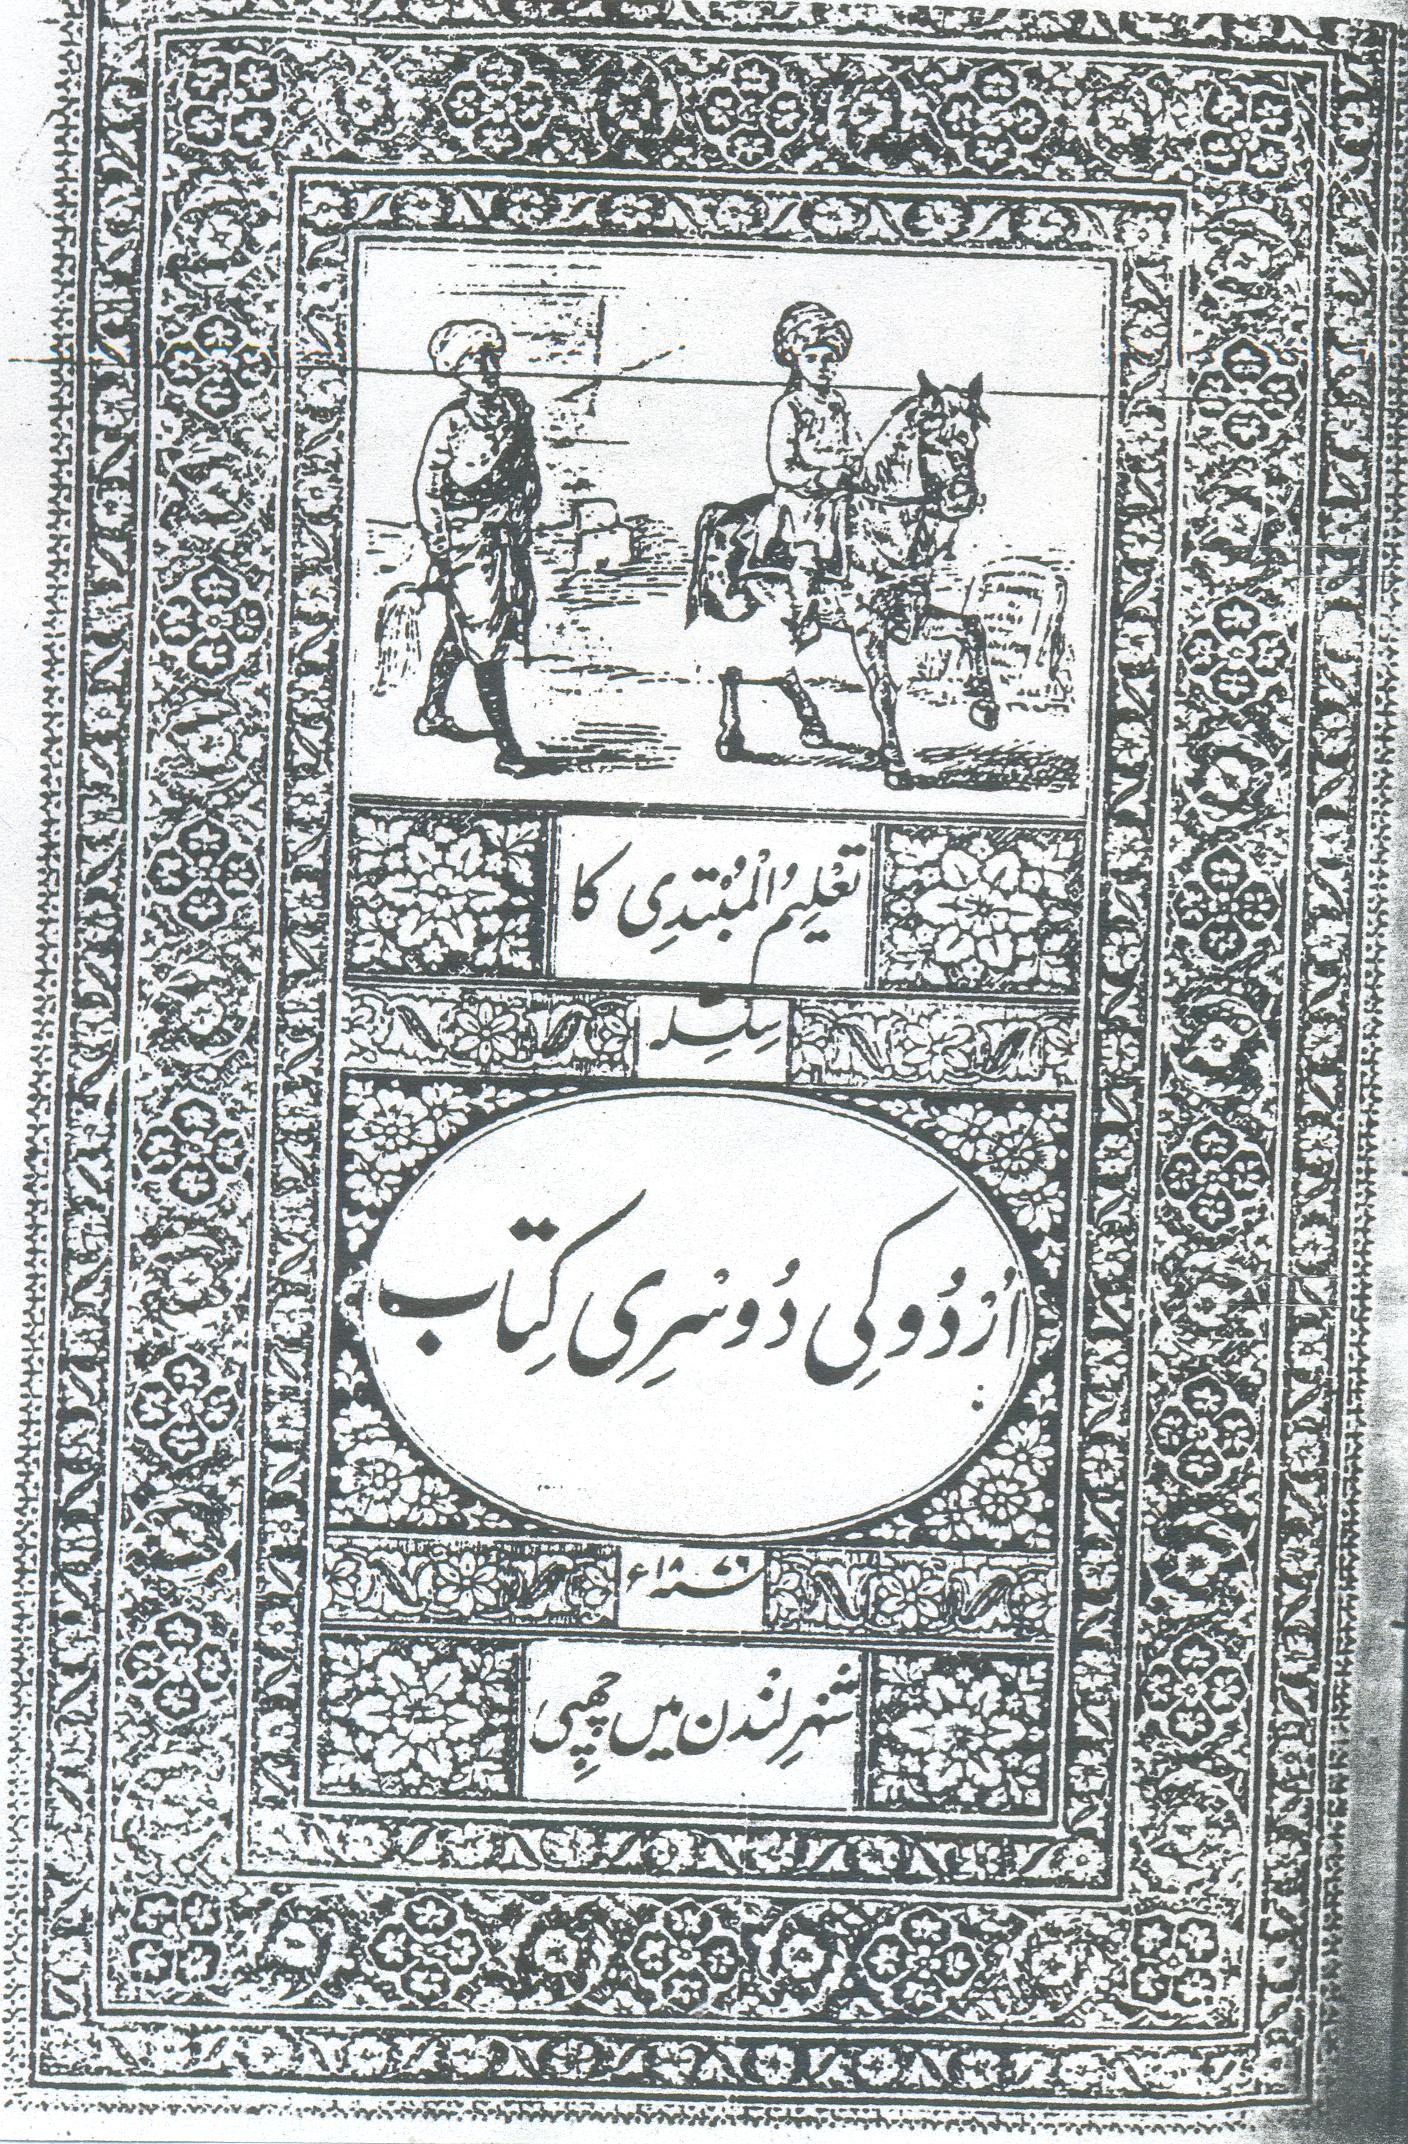 تَعْلِيمُ الْمُبْتَدِي کا
سِلْسِلہ
اُرْدُو کِی دُوسْرِی کِتَاب
سنہ ۱۸۷۶ء
شہْرِ لَنْدن میں چھپِی